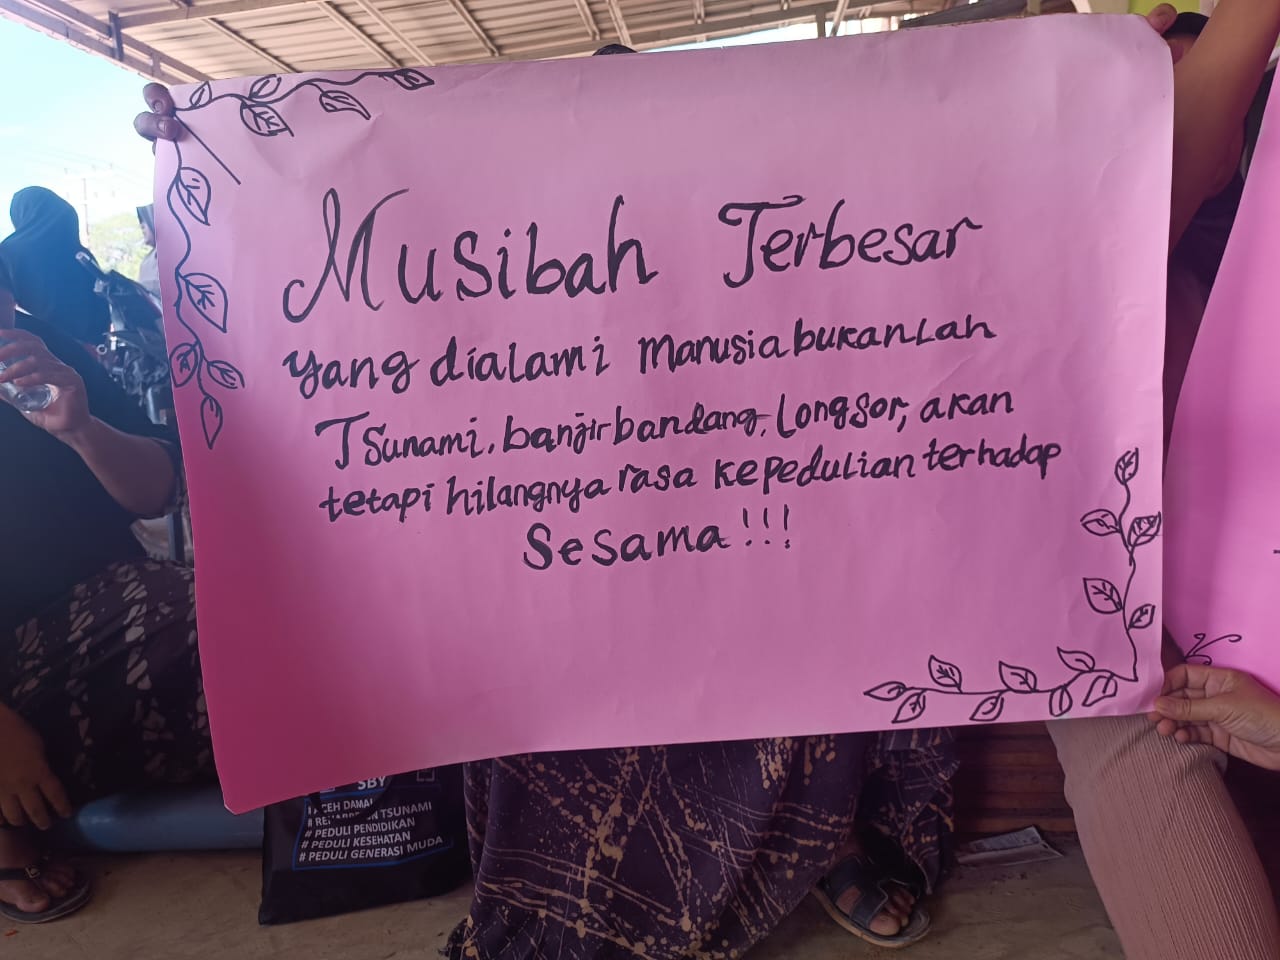 Musibah Terbesar
yang dialami manusia bukanlah
Tsunami, banjir bandang, Longsor, akan
tetapi hilangnya rasa kepedulian terhadap
Sesama!!!
SBY
ACEH DAMAI
# PEDULI PENDIDIKAN
# PEDULI KESEHATAN
# PEDULI GENERASI MUDA
TSUNAMI